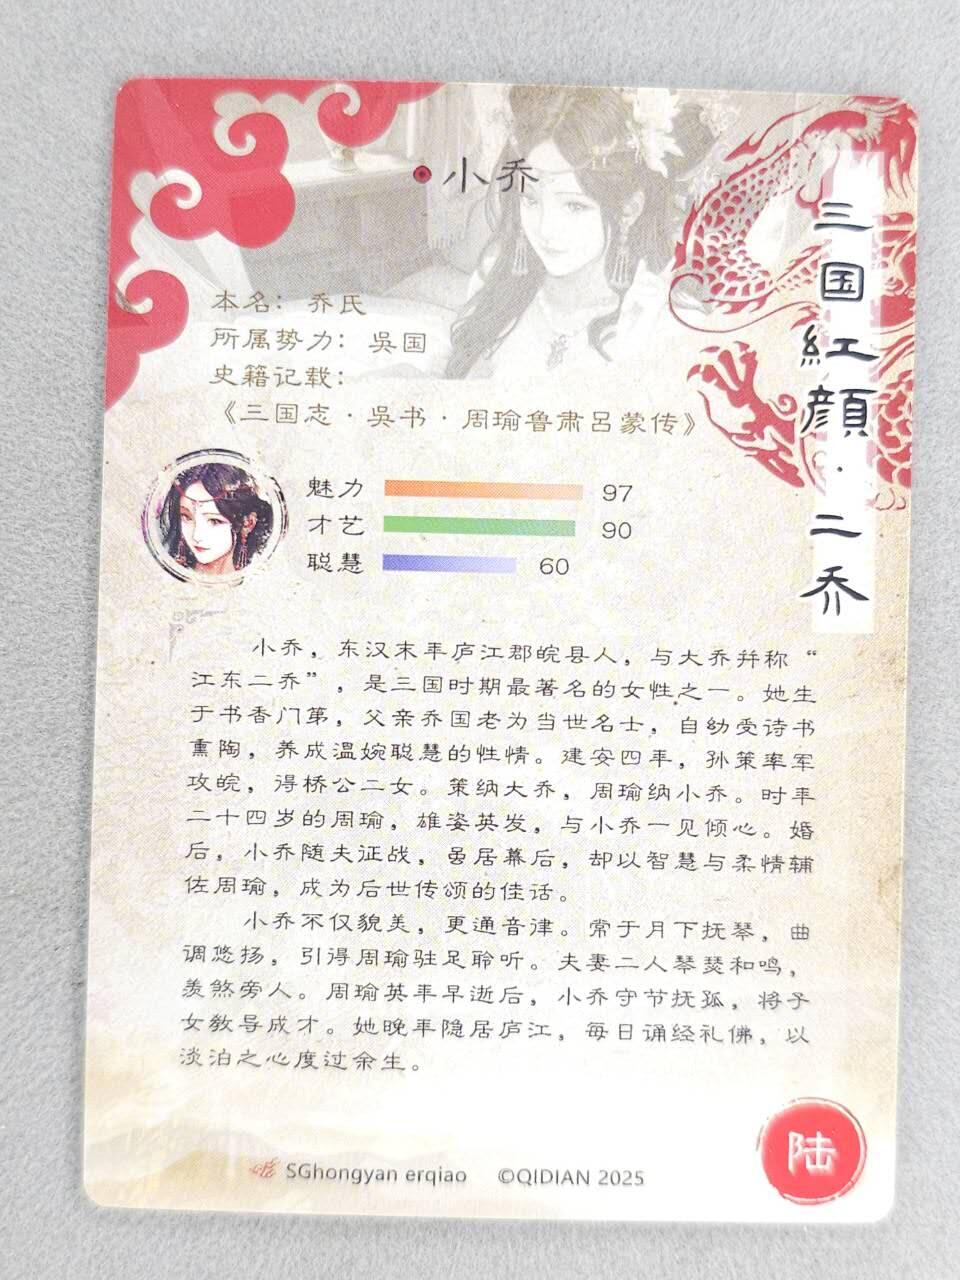 小乔
三国紅顔·二乔
本名：乔氏
所属势力：吳国
史籍记载：
《三国志·吳书·周瑜鲁肃吕蒙传》
魅力 97
才艺 90
聪慧 60
小乔，东汉末年庐江郡皖县人，与大乔并称“
江东二乔”，是三国时期最著名的女性之一。她生
于书香门第，父亲乔国老为当世名士，自幼受诗书
熏陶，养成温婉聪慧的性情。建安四年，孙策率军
攻皖，得桥公二女。策纳大乔，周瑜纳小乔。时年
二十四岁的周瑜，雄姿英发，与小乔一见倾心。婚
后，小乔随夫征战，虽居幕后，却以智慧与柔情辅
佐周瑜，成为后世传颂的佳话。
小乔不仅貌美，更通音律。常于月下抚琴，曲
调悠扬，引得周瑜驻足聆听。夫妻二人琴瑟和鸣，
羡煞旁人。周瑜英年早逝后，小乔守节抚孤，将子
女教导成才。她晚年隐居庐江，每日诵经礼佛，以
淡泊之心度过余生。
SGhongyan erqiao ©QIDIAN 2025
陆